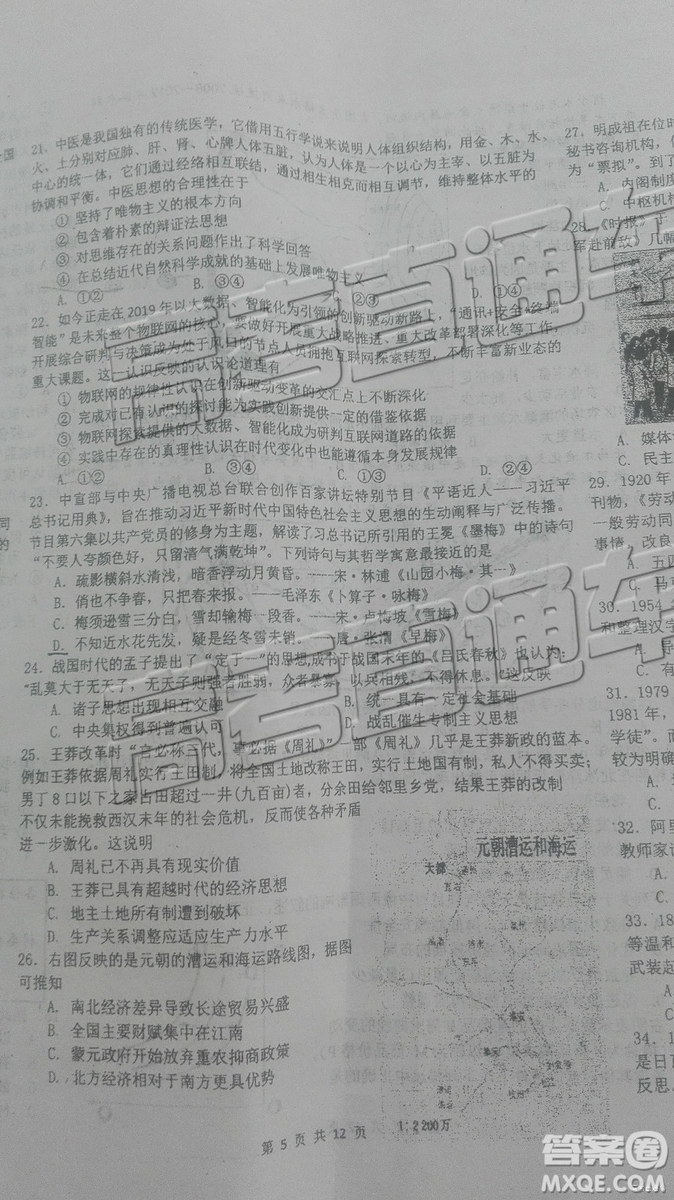 21. 中医是我国独有的传统医学，它借用五行学说来说明人体组织结构，用金、木、水、
火、土分别对应肺、肝、肾、心、脾人体五脏，认为人体是一个以心为主宰、以五脏为
中心的统一体，它们通过经络相互联结，通过相生相克而相互调节，维持整体水平的
协调和平衡。中医思想的合理性在于
① 坚持了唯物主义的根本方向
② 包含着朴素的辩证法思想
③ 对思维存在的关系问题作出了科学回答
④ 在总结近代自然科学成就的基础上发展唯物主义
A. ①② B. ③④
22. 如今正走在 2019 年以大数据、智能化为引领的创新驱动新路上，“通讯+安全+终端
智能”是未来整个物联网的核心，要做好开展重大战略推进、重大改革部署深化等工作，
开展综合研判与决策成为处于风口的节点人员拥抱互联网探索转型，不断丰富新业态的
重大课题。这一认识反映的认识论道理有
① 物联网的规律性认识在创新驱动变革的交汇点上不断深化
② 完成对已有认识的探讨能为实践创新提供一定的借鉴依据
③ 物联网探索提供的大数据、智能化成为研判互联网道路的依据
④ 实践中存在的真理性认识在时代变化中也在不断地发展规律
A. ①② B. ③④ C. ①③ D. ②④
23. 中宣部与中央广播电视总台联合创作百家讲坛特别节目《平语近人——习近平
总书记用典》，旨在推动习近平新时代中国特色社会主义思想的生动阐释与广泛传播。
节目第六集以共产党员的修身为主题，解读了习总书记所引用的王冕《墨梅》中的诗句
“不要人夸颜色好，只留清气满乾坤”。下列诗句与其哲学寓意最接近的是
A. 疏影横斜水清浅，暗香浮动月黄昏。——宋·林逋《山园小梅·其一》
B. 俏也不争春，只把春来报。——毛泽东《卜算子·咏梅》
C. 梅须逊雪三分白，雪却输梅一段香。——宋·卢梅坡《雪梅》
D. 不知近水花先发，疑是经冬雪未销。——唐·张谓《早梅》
24. 战国时代的孟子提出了“定于一”的思想，成于战国末年的《吕氏春秋》也认为：
“乱莫大于无天子，无天子则强者胜弱，众者暴寡，以兵相残，不得休息。”这反映
A. 诸子思想出现相互交融 B. 统一具有一定社会基础
C. 中央集权得到普遍认可 D. 战乱催生专制主义思想
25. 王莽改革时“言必称三代，事必据《周礼》”一部《周礼》几乎是王莽新政的蓝本。
例如王莽依据周礼实行土田制，将全国土地改称王田，实行土地国有，私人不得买卖；
男丁 8 口以下之家占田超过一井(九百亩)者，分余田给邻里乡党，结果王莽的改制
不仅未能挽救西汉末年的社会危机，反而使各种矛盾
进一步激化。这说明
A. 周礼已不再具有现实价值
B. 王莽已具有超越时代的经济思想
C. 地主土地所有制遭到破坏
D. 生产关系调整应适应生产力水平
26. 右图反映的是元朝的漕运和海运路线图，据图
可推知
A. 南北经济差异导致长途贸易兴盛
B. 全国主要财赋集中在江南
C. 蒙元政府开始放弃重农抑商政策
D. 北方经济相对于南方更具优势
元朝漕运和海运
大都
1:2200万
第 5 页 共 12 页
27. 明成祖在位时
秘书咨询机构，
为“票拟”。到了
A. 内阁制度
C. 中枢机构
28. 《时报》
军赴前敌》几幅
A. 媒体
C. 民主
29. 1920 年
刊物，《劳动
一般劳动同
事情，改良
A. 五四
C.
30. 1954
和整理汉字
A.
31. 1979
1981 年，
学徒”。而
较为明显
A.
C.
32. 阿里
教师家
A.
C.
33. 18
等温和
武装起
A.
C.
34.
是日
反思
高考直通车
高考直通车
高考直通车
答案圈
MXQE.COM